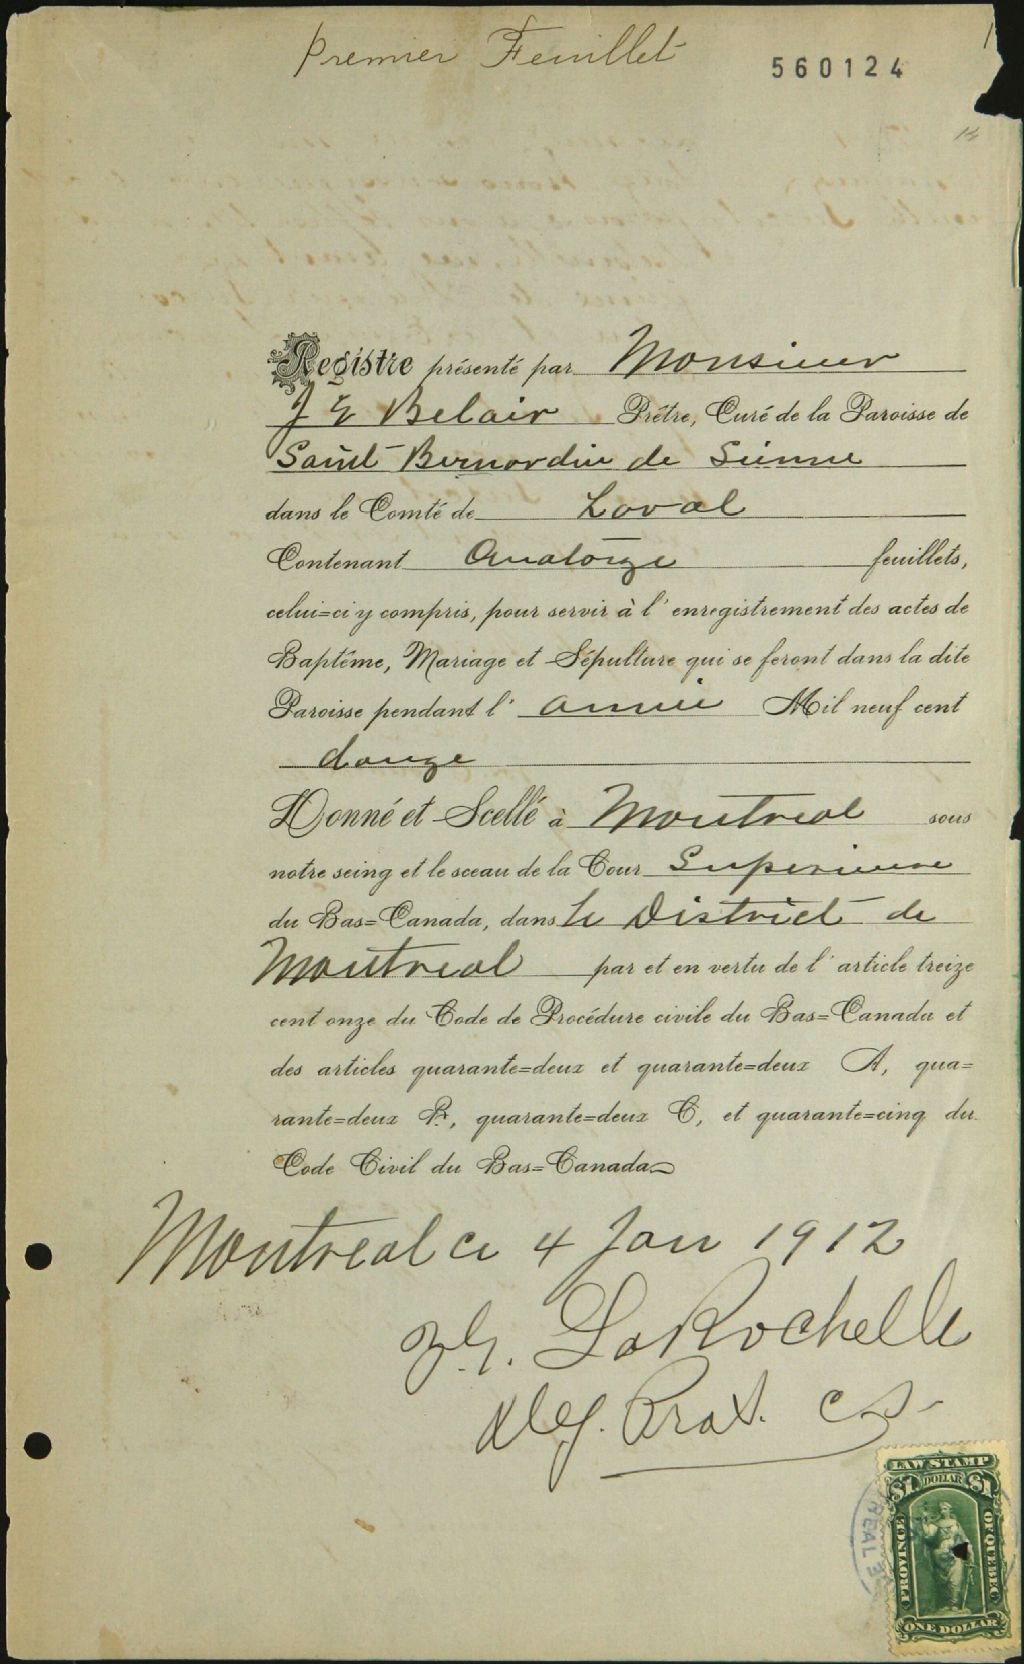 Premier Feuillet
560124
14
Registre présenté par Monsieur
J E Belair Prêtre, Curé de la Paroisse de
Saint Bernardin de Sienne
dans le Comté de Laval
Contenant Quatorze feuillets,
celui=ci y compris, pour servir à l'enregistrement des actes de
Baptême, Mariage et Sépulture qui se feront dans la dite
Paroisse pendant l'année Mil neuf cent
douze
Donné et Scellé à Montreal sous
notre seing et le sceau de la Cour Superieure
du Bas=Canada, dans le District de
Montreal par et en vertu de l'article treize
cent onze du Code de Procédure civile du Bas=Canada et
des articles quarante=deux et quarante=deux A, qua=
rante=deux B, quarante=deux C, et quarante=cinq du
Code Civil du Bas=Canada
Montreal ce 4 Jan 1912
LaRochelle
Dep. Prot. C.S.
LAW STAMP
$1 DOLLAR $1
PROVINCE OF QUEBEC
ONE DOLLAR